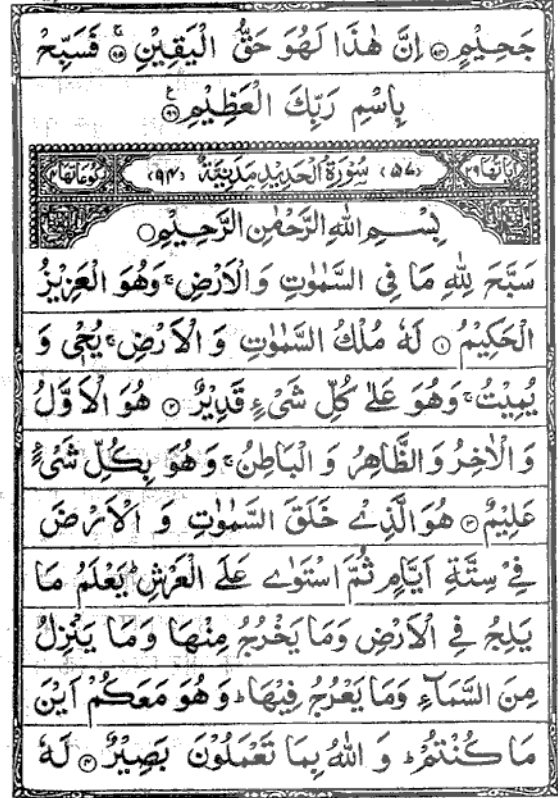 جَحِيْمٍ ﴿۹۴﴾ اِنَّ هٰذَا لَهُوَ حَقُّ الْيَقِيْنِ ﴿۹۵﴾ فَسَبِّحْ
بِاسْمِ رَبِّكَ الْعَظِيْمِ ﴿۹۶﴾
اٰيَاتُهَا ۲۹ (۵۷) سُوْرَةُ الْحَدِيْدِ مَدَنِيَّةٌ (۹۴) رُكُوْعَاتُهَا ۴
بِسْمِ اللّٰهِ الرَّحْمٰنِ الرَّحِيْمِ
سَبَّحَ لِلّٰهِ مَا فِي السَّمٰوٰتِ وَالْاَرْضِ ۚ وَهُوَ الْعَزِيْزُ
الْحَكِيْمُ ﴿۱﴾ لَهٗ مُلْكُ السَّمٰوٰتِ وَ الْاَرْضِ ۚ يُحْيٖ وَ
يُمِيْتُ ۚ وَهُوَ عَلٰى كُلِّ شَيْءٍ قَدِيْرٌ ﴿۲﴾ هُوَ الْاَوَّلُ
وَ الْاٰخِرُ وَ الظَّاهِرُ وَ الْبَاطِنُ ۚ وَ هُوَ بِكُلِّ شَيْءٍ
عَلِيْمٌ ﴿۳﴾ هُوَ الَّذِيْ خَلَقَ السَّمٰوٰتِ وَ الْاَرْضَ
فِيْ سِتَّةِ اَيَّامٍ ثُمَّ اسْتَوٰى عَلَى الْعَرْشِ ؕ يَعْلَمُ مَا
يَلِجُ فِي الْاَرْضِ وَمَا يَخْرُجُ مِنْهَا وَمَا يَنْزِلُ
مِنَ السَّمَآءِ وَمَا يَعْرُجُ فِيْهَا ؕ وَ هُوَ مَعَكُمْ اَيْنَ
مَا كُنْتُمْ ؕ وَ اللّٰهُ بِمَا تَعْمَلُوْنَ بَصِيْرٌ ﴿۴﴾ لَهٗ